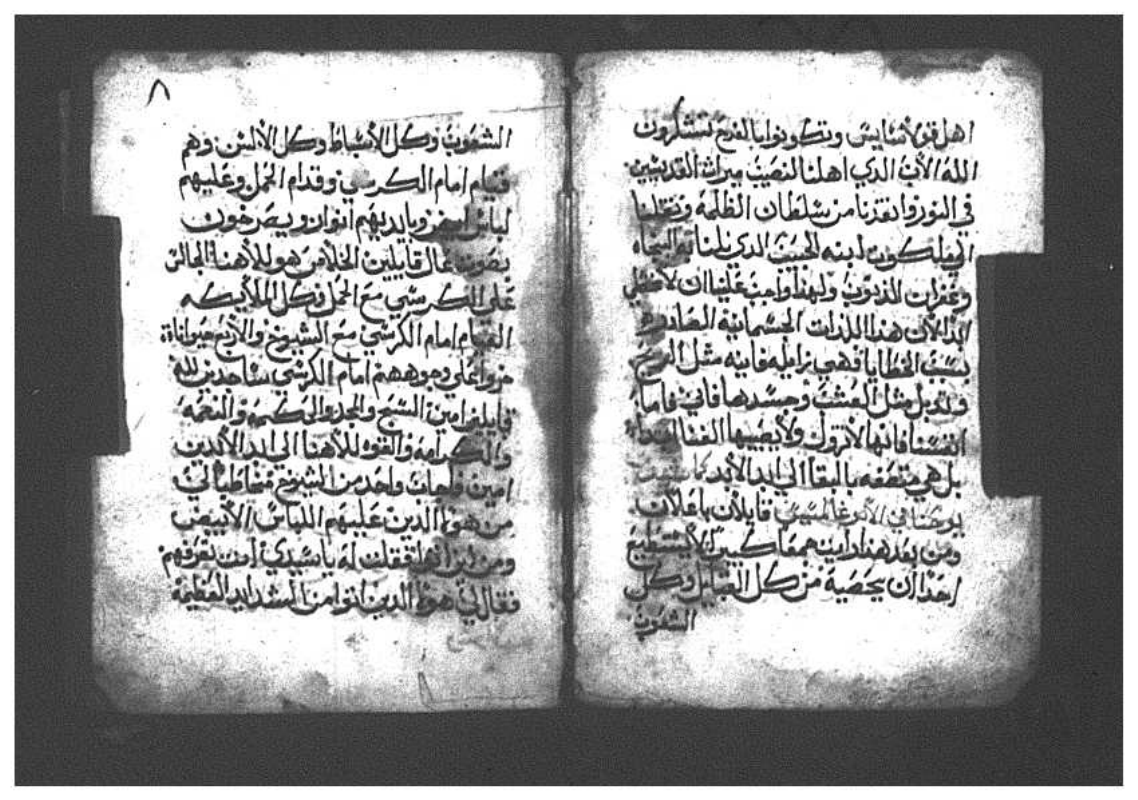 اهل قولاسايس وتكونوا بالفرح تتشكرون
الله الاب الدي اهلنا لنصيب ميراث القديسين
في النور وانقدنا من سلطان الظلمة ونقلنا
الي ملكوت ابنه الحبيب الدي نلنا به النجاه
وغفران الدنوب ولهدا واجب علينا ان لا
هدا اللدات الجسمانية
بسبب الخطايا فهي زايله فانيه مثل الريح
وتدبل مثل العشب وجسدها فاني فاما
انفسنا فانها لا تزول ولا يصيبها الفنا
بل هي متصفه بالبقا الي ابد الابد كما
يوحنا في قايلا
ومن بعد هدا رايت جمعا كبيرا لا يستطيع
احدا ان يحصية من كل القبايل وكل
الشعوب
٨
الشعوب وكل الاسباط وكل الالسن وهم
قيام امام الكرسي وقدام الحمل وعليهم
لباس ابيض وبايديهم ويصرخون
بصوت عال قايلين الخلاص هو لالاهنا الجالس
علي الكرسي مع الحمل وكل الملايكه
القيام امام الكرسي مع الشيوخ والاربع حيواناة
خروا علي وجوههم امام الكرسي ساجدين لله
قايلين امين السبح والمجد والحكمه والنعمه
والكرامه والقوه لالاهنا الي ابد الابدين
امين واحد من الشيوخ مخاطبا لي
من هولا الدين عليهم اللباس الابيض
ومن اين فقلت له يا سيدي انت تعرفهم
فقال لي هولا الدين اتوا من الشدايد العظيمة